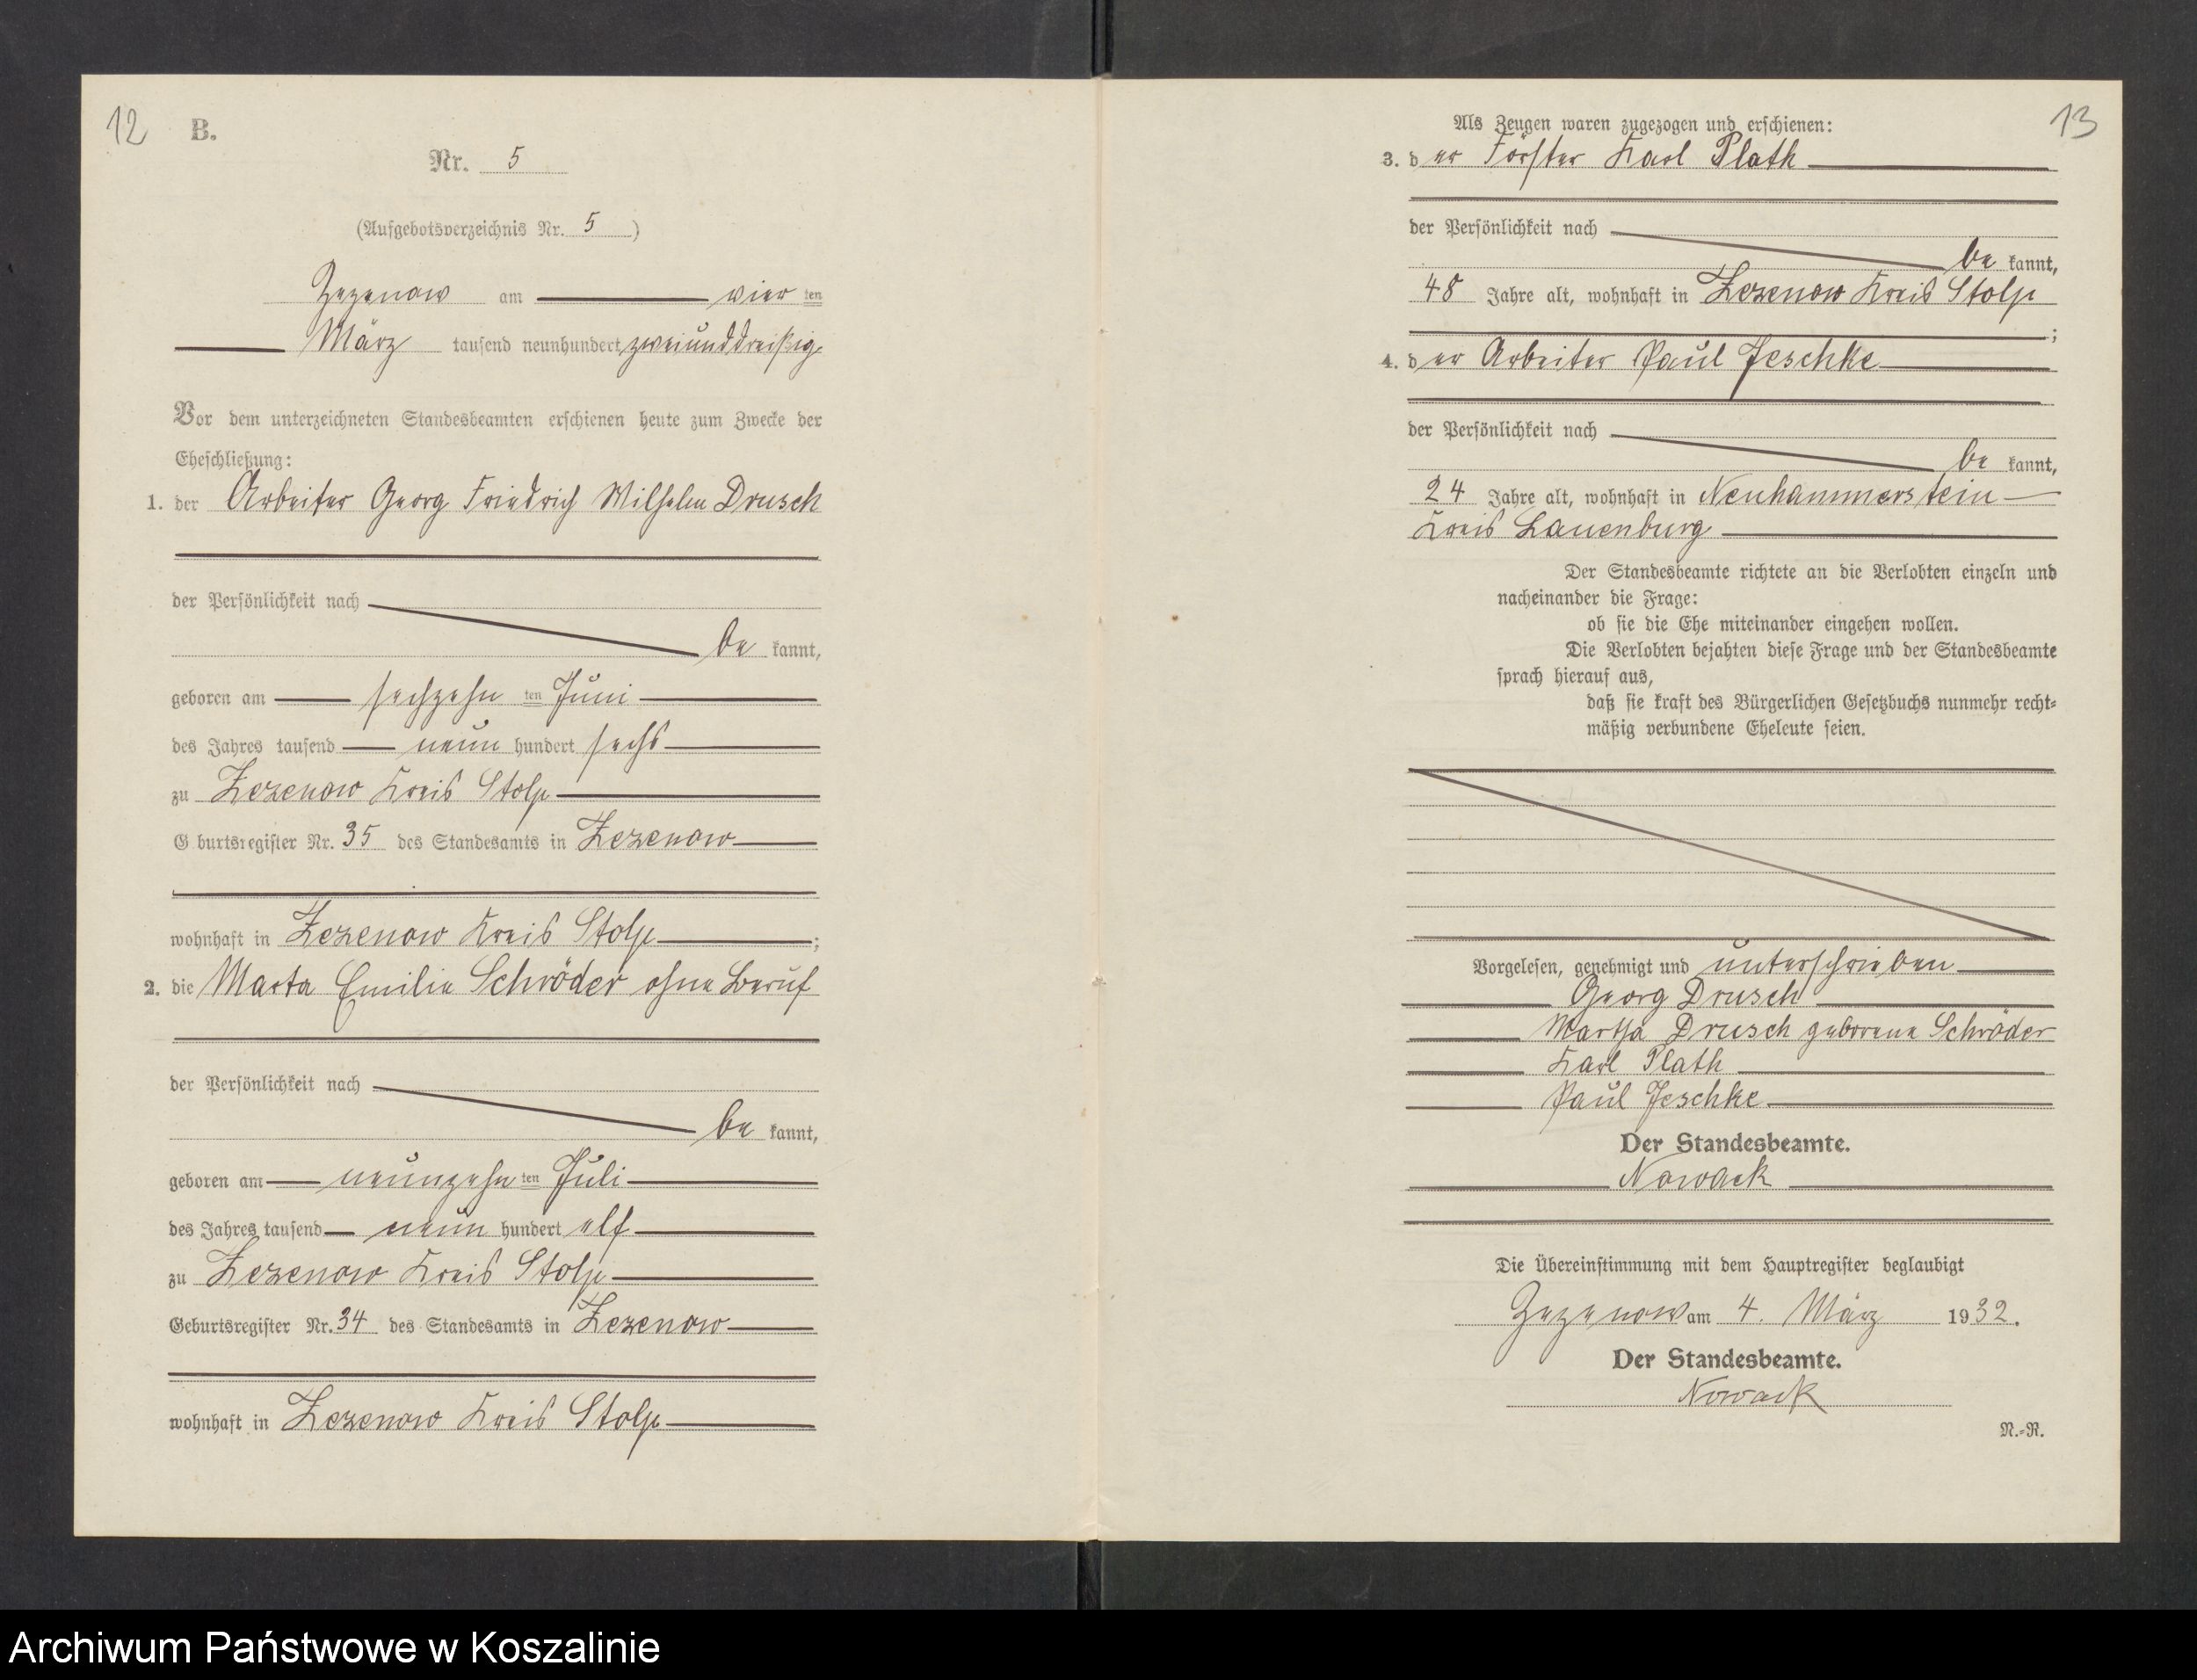 12
B.
Nr. 5
(Aufgebotsverzeichnis Nr. 5)
Zezenow am vier ten
März tausend neunhundert zweiunddreißig.
Vor dem unterzeichneten Standesbeamten erschienen heute zum Zwecke der
Eheschließung:
1. der Arbeiter Georg Friedrich Wilhelm Drusch
der Persönlichkeit nach
be kannt,
geboren am sechzehn ten Juni
des Jahres tausend neun hundert sechs
zu Zezenow Kreis Stolp
G burtsregister Nr. 35 des Standesamts in Zezenow
wohnhaft in Zezenow Kreis Stolp ;
2. die Marta Emilie Schröder ohne Beruf
der Persönlichkeit nach
be kannt,
geboren am neunzehn ten Juli
des Jahres tausend neun hundert elf
zu Zezenow Kreis Stolp
Geburtsregister Nr. 34 des Standesamts in Zezenow
wohnhaft in Zezenow Kreis Stolp
13
Als Zeugen waren zugezogen und erschienen:
3. d er Förster Karl Plath
der Persönlichkeit nach
be kannt,
48 Jahre alt, wohnhaft in Zezenow Kreis Stolp
;
4. d er Arbeiter Paul Jeschke
der Persönlichkeit nach
be kannt,
24 Jahre alt, wohnhaft in Neuhammerstein
Kreis Lauenburg
Der Standesbeamte richtete an die Verlobten einzeln und
nacheinander die Frage:
ob sie die Ehe miteinander eingehen wollen.
Die Verlobten bejahten diese Frage und der Standesbeamte
sprach hierauf aus,
daß sie kraft des Bürgerlichen Gesetzbuchs nunmehr recht-
mäßig verbundene Eheleute seien.
Vorgelesen, genehmigt und unterschrieben
Georg Drusch
Martha Drusch geborene Schröder
Karl Plath
Paul Jeschke
Der Standesbeamte.
Nowack
Die Übereinstimmung mit dem Hauptregister beglaubigt
Zezenow am 4. März 1932.
Der Standesbeamte.
Nowack
N.-R.
Archiwum Państwowe w Koszalinie